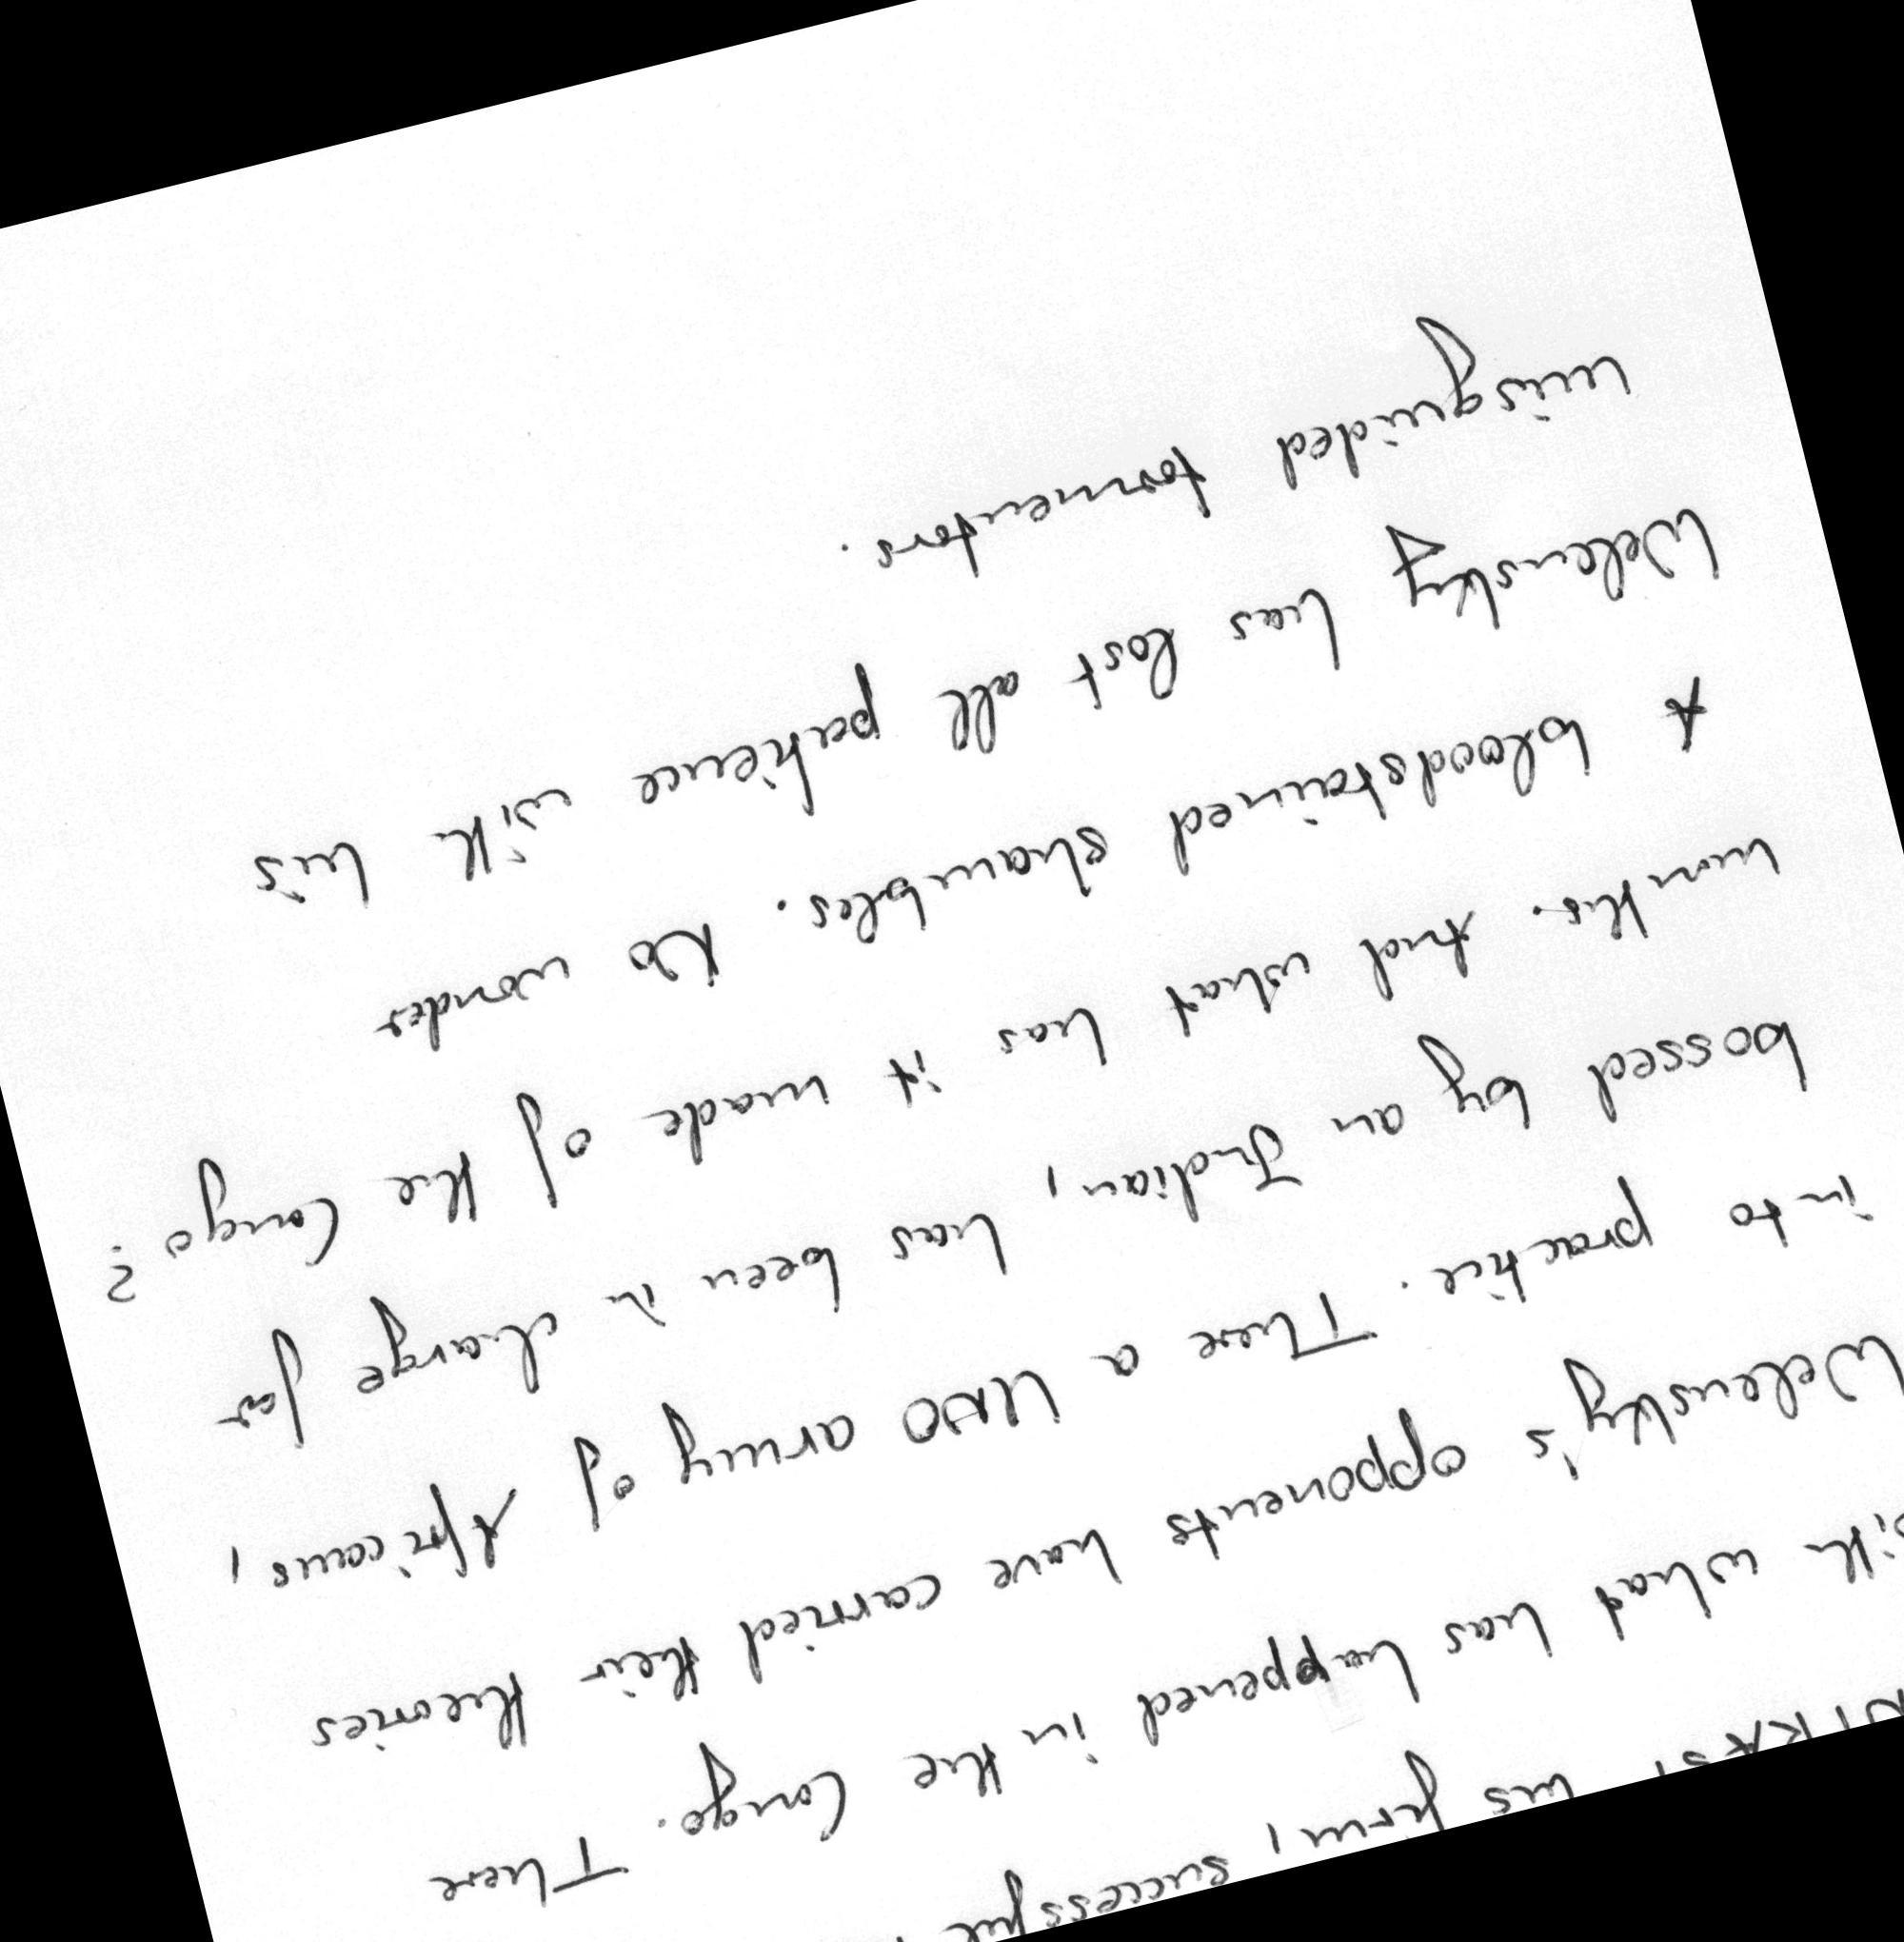 his firm, successful
what has happened in the Congo. There
Welensky's opponents have carried their theories
into practice. There a UNO army of Africans,
bossed by an Indian, has been in charge for
months. And what has it made of the Congo?
A bloodstained shambles. No wonder
Welensky has lost all patience with his
misguided tormentors.